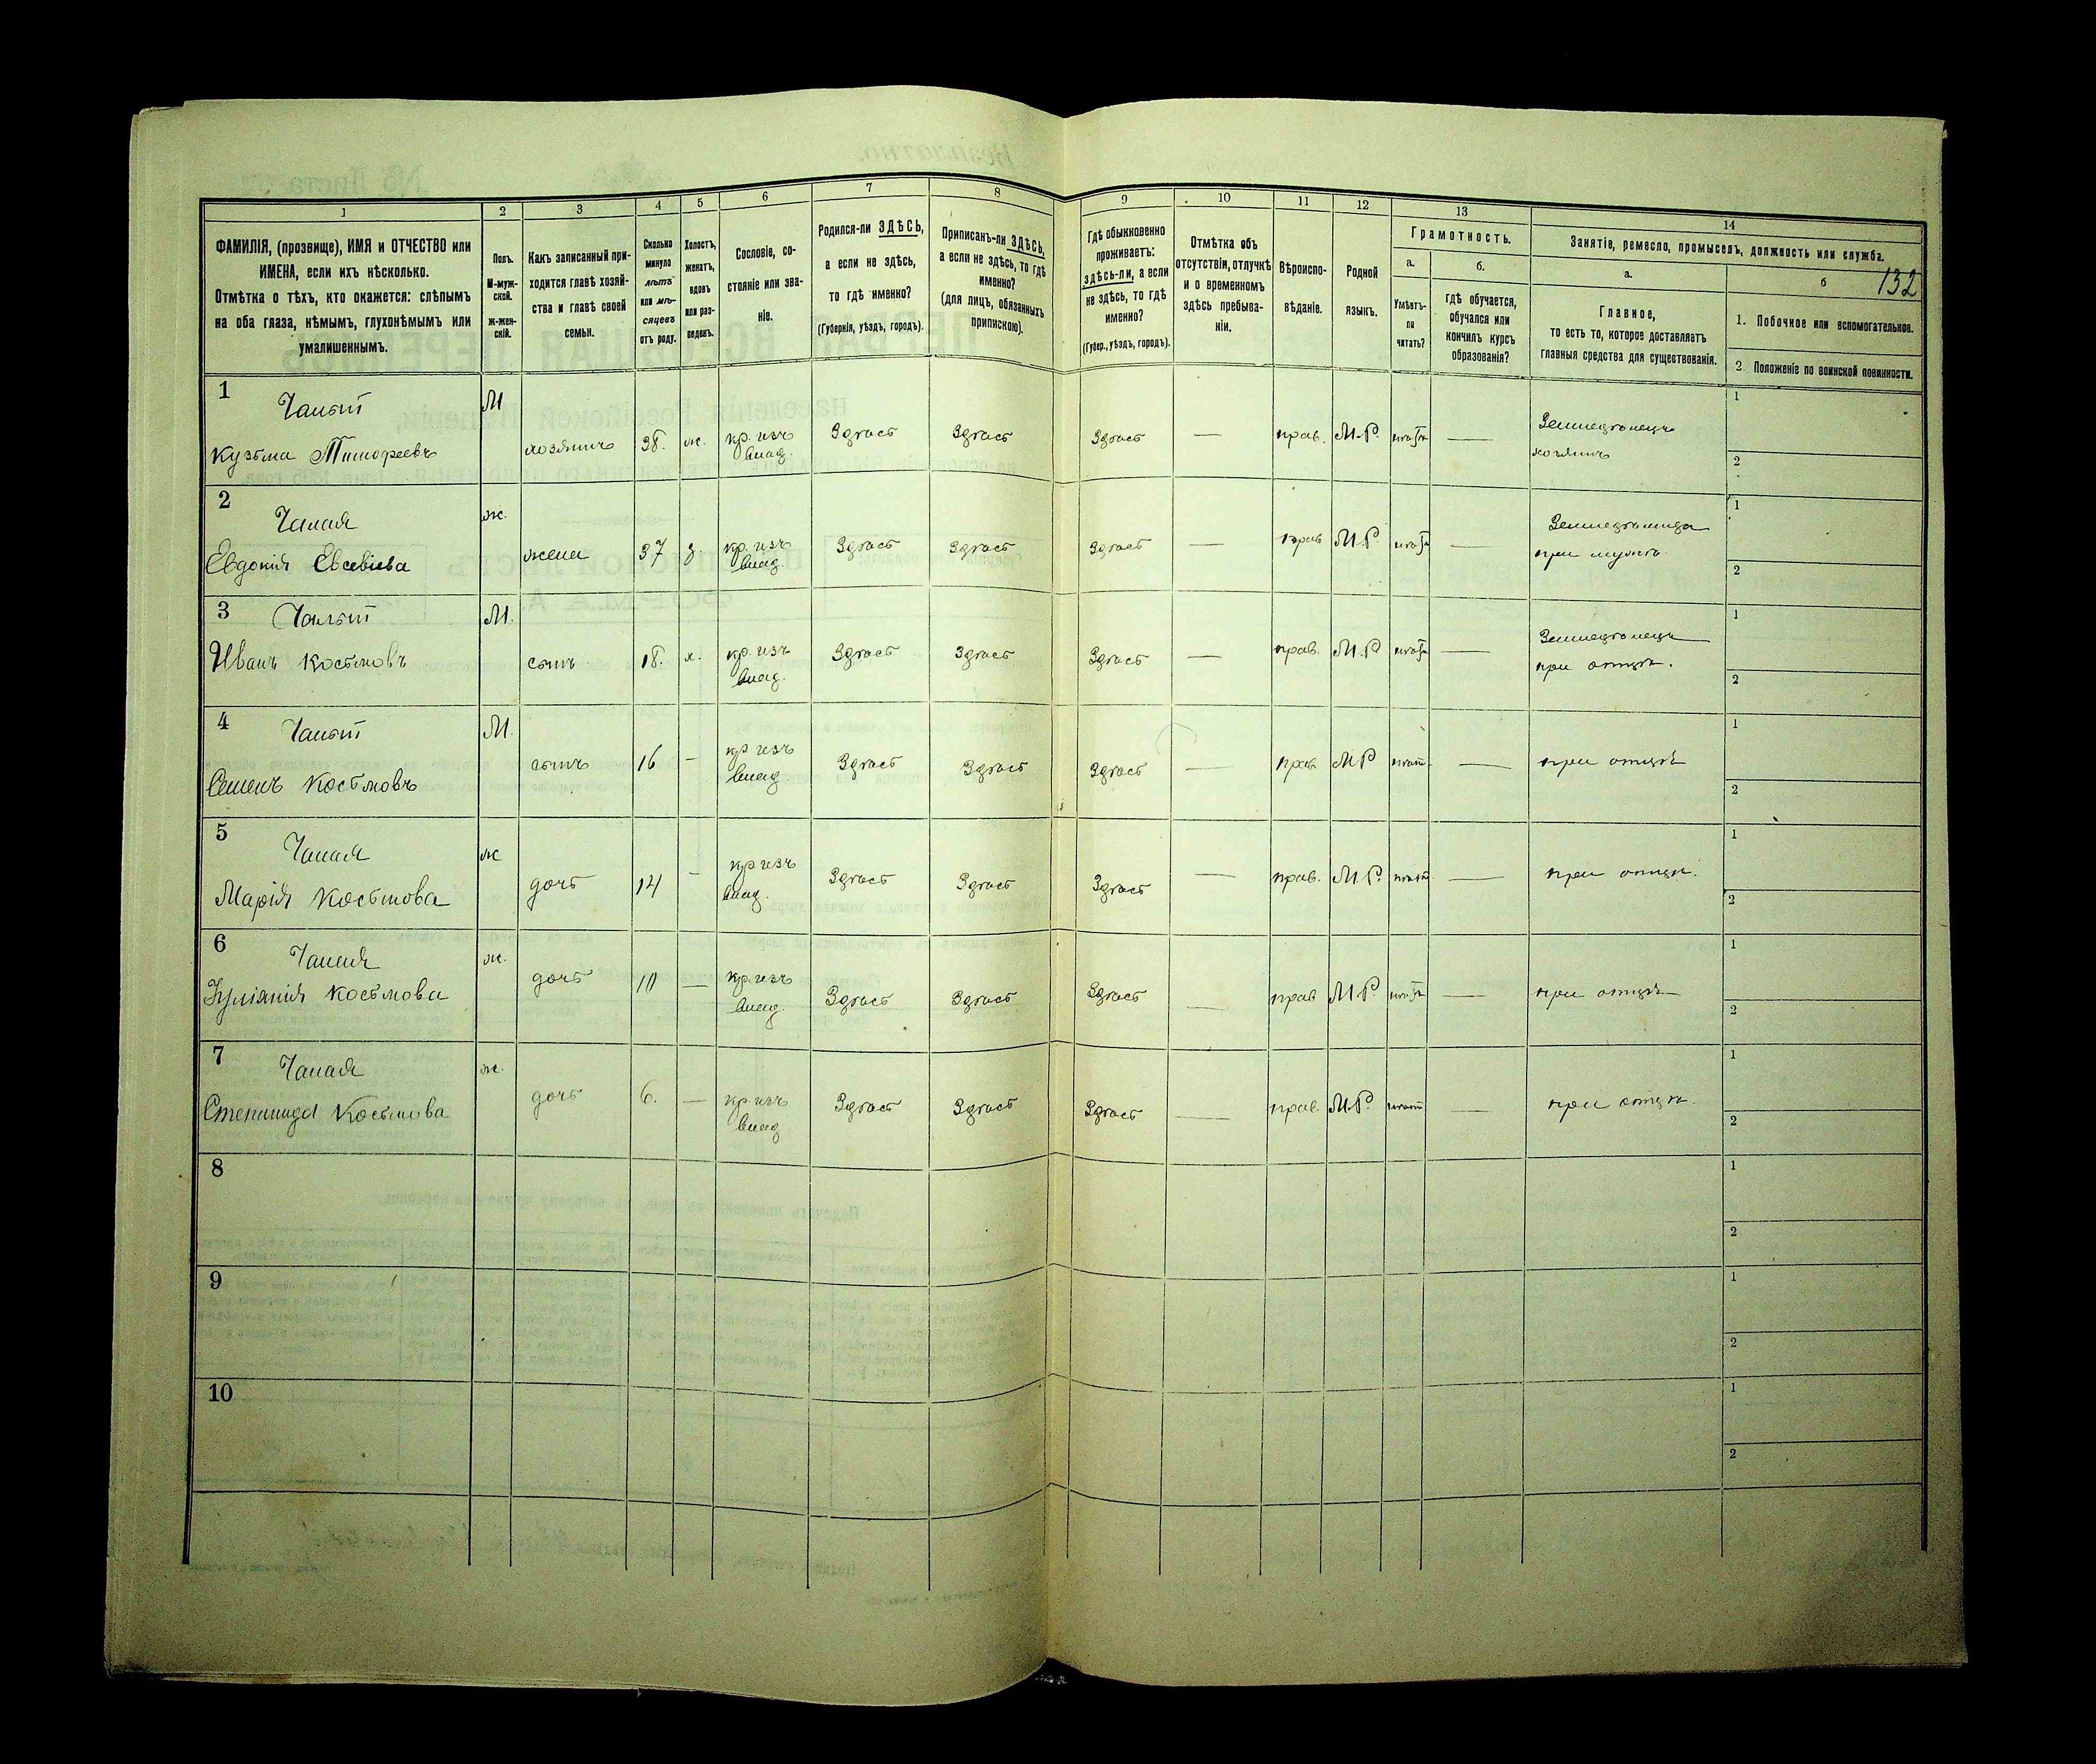 132
1 2 3 4 5 6 7 8 9 10 11 12 13 14
ФАМИЛІЯ, (прозвище), ИМЯ и ОТЧЕСТВО или
ИМЕНА, если ихъ нѣсколько.
Отмѣтка о тѣхъ, кто окажется: слѣпымъ
на оба глаза, нѣмымъ, глухонѣмымъ или
умалишеннымъ.
Полъ.
М-муж-
ской.
Ж-жен-
скій.
Какъ записанный при-
ходится главѣ хозяй-
ства и главѣ своей
семьи.
Сколько
минуло
лѣтъ
или мѣ-
сяцевъ
отъ роду.
Холостъ,
женатъ,
вдовъ
или раз-
веденъ.
Сословіе, со-
стояніе или зва-
ніе.
Родился-ли ЗДѢСЬ,
а если не здѣсь,
то гдѣ именно?
(Губернія, уѣздъ, городъ).
Приписанъ-ли ЗДѢСЬ,
а если не здѣсь, то гдѣ
именно?
(для лицъ, обязанныхъ
припискою).
Гдѣ обыкновенно
проживаетъ:
здѣсь-ли, а если
не здѣсь, то гдѣ
именно?
(Губер., уѣздъ, городъ).
Отмѣтка объ
отсутствіи, отлучкѣ
и о временномъ
здѣсь пребыва-
ніи.
Вѣроиспо-
вѣданіе.
Родной
языкъ.
Грамотность.
а.
Умѣетъ-
ли
читать?
б.
гдѣ обучается,
обучался или
кончилъ курсъ
образованія?
Занятіе, ремесло, промыселъ, должность или служба.
а.
Главное,
то есть то, которое доставляетъ
главныя средства для существованія.
б
1. Побочное или вспомогательное.
2. Положеніе по воинской повинности.
1
Кузьма Тимофеевъ
М
хозяинъ 38. ж. кр. изъ
влад.
Здѣсь Здѣсь Здѣсь — прав. М.Р. —
Земледѣлецъ
хозяинъ
1
2
2
Евдокія Евсевіева
ж.
жена 37 з. кр. изъ
влад.
Здѣсь Здѣсь Здѣсь — прав М.Р. —
при мужѣ
1
2
3
Иванъ Козьмовъ
М.
сынъ 18. х. кр. изъ
влад.
Здѣсь Здѣсь Здѣсь — прав. М.Р —
Земледѣлецъ
при отцѣ.
1
2
4
Семенъ Козьмовъ
М.
сынъ 16 — кр. изъ
влад.
Здѣсь Здѣсь Здѣсь — прав М.Р нѣтъ —
при отцѣ
1
2
5
Марія Козьмова
ж
дочь 14 — кр. изъ
влад.
Здѣсь Здѣсь Здѣсь — прав. М.Р. нѣтъ —
при отцѣ.
1
2
6
Іуліянія Козьмова
ж.
дочь 10 — кр. изъ
влад.
Здѣсь Здѣсь Здѣсь — прав М.Р. —
при отцѣ
1
2
7
Степанида Козьмова
ж.
дочь 6. — кр. изъ
влад
Здѣсь Здѣсь Здѣсь — прав. М.Р. нѣтъ —
при отцѣ.
1
2
8
1
2
9
1
2
10
1
2